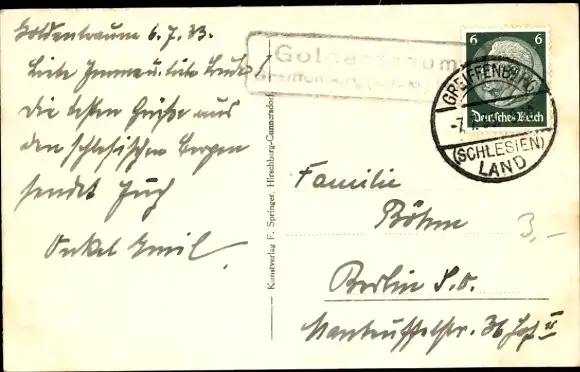 Goldentraum 6.7.33.
Liebe Imme u. liebe Bude!
die besten Grüße aus
den schlesischen Bergen
sendet Euch
Onkel Emil.
Goldentraum
Greiffenberg
6 6
Deutsches Reich
GREIFFENBERG
(SCHLESIEN)
LAND
Kunstverlag F. Springer, Hirschberg-Cunnersdorf
Familie
Böhm
Berlin S.O.
Manteuffelstr. 36 Hof II
3,-